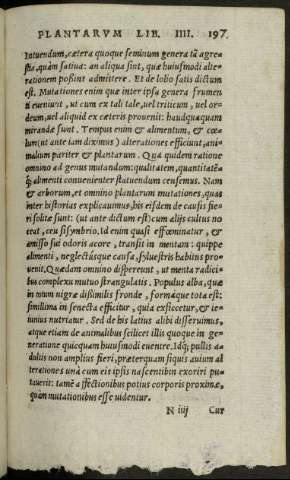 PLANTARVM LIB. IIII. 197.
intuendum, cætera quoque seminum genera tā agre
stia, quàm satiua: an aliqua sint, quæ huiusmodi alte-
rationem possint admittere. Et de lobo satis dictum
est. Mutationes enim quæ inter ipsa genera frumen
ti eueniunt, ut cum ex tali tale, uel triticum, uel or-
deum, uel aliquid ex cæteris prouenit: haudquaquam
mirandæ sunt. Tempus enim & alimentum, & cœ-
lum (ut ante iam diximus) alterationes efficiunt, ani-
malium pariter & plantarum. Qua quidem ratione
omnino ad genus mutandum: qualitatem, quantitatē
q; alimenti conuenienter statuendum censemus. Nam
& arborum, et omnino plantarum mutationes, quas
inter historias explicauimus, his eisdem de causis fie-
ri solitæ sunt: (ut ante dictum est) cum alijs cultus no
ceat, ceu sisymbrio. Id enim quasi effœminatur, &
amisso sui odoris acore, transit in mentam: quippe
alimenti, neglectúsque causa, syluestris habitus pro-
uenit. Quædam omnino dispereunt, ut menta radici-
bus complexu mutuo strangulatis. Populus alba, quæ
in totum nigræ dissimilis fronde, formáque tota est:
simillima in senecta efficitur, quia exsiccetur, & ie-
iunius nutriatur. Sed de his latius alibi disseruimus,
atque etiam de animalibus scilicet illis quoque in ge-
neratione quicquam huiusmodi euenire. Idq; pullis a-
dultis non amplius fieri, præterquam siquis auium al
terationes unà cum eis ipsis nascentibus exoriri pu-
tauerit: tamē affectionibus potius corporis proximæ,
quàm mutationibus esse uidentur.
N iiij Cur